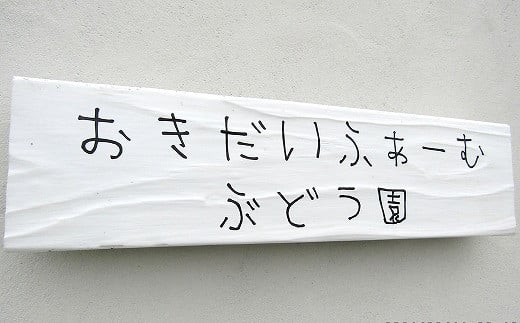 おきだいふぁーむ
ぶどう園